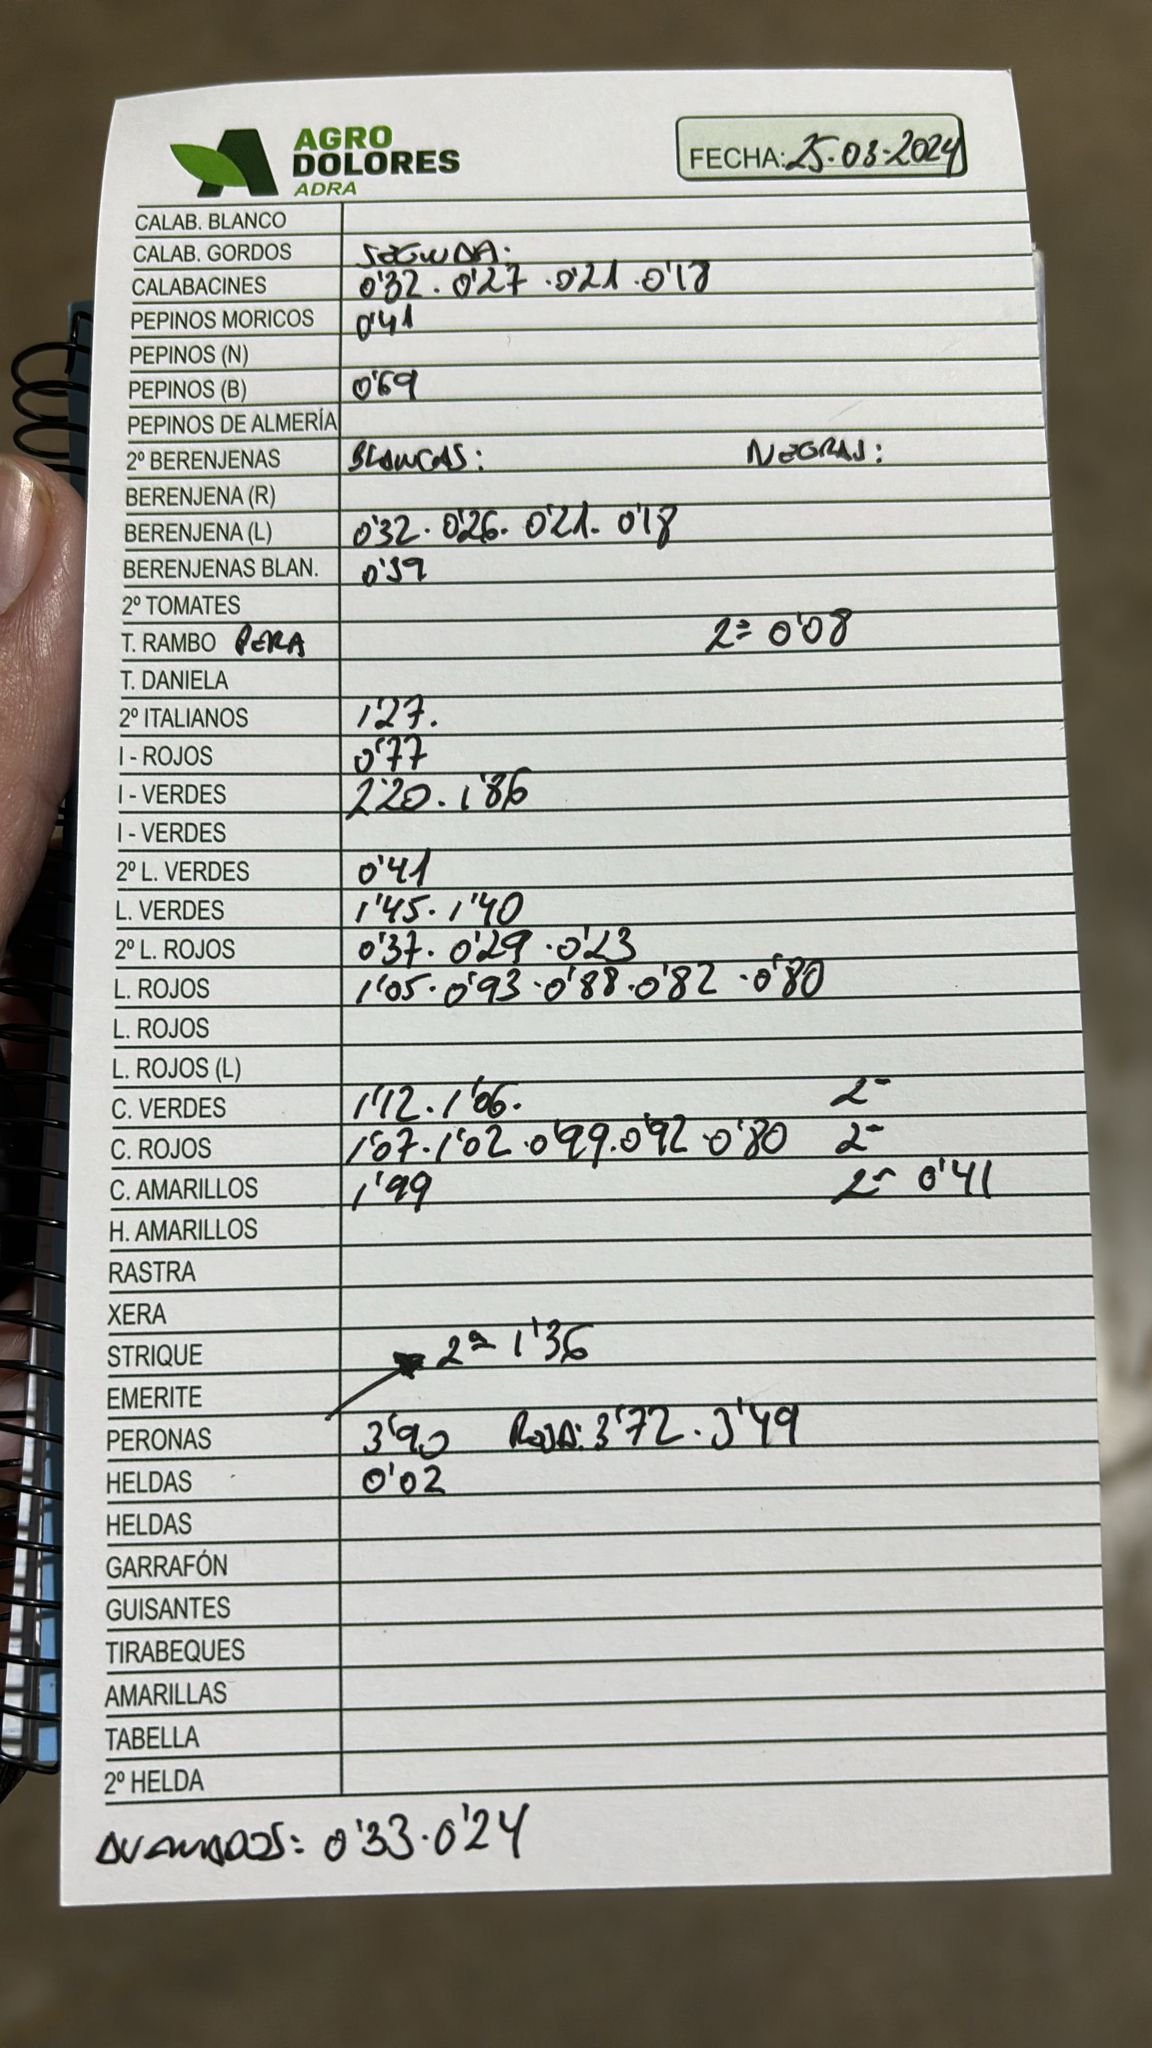 AGRO
DOLORES
ADRA
FECHA: 25-03-2024
CALAB. BLANCO
CALAB. GORDOS SEGUNDA:
CALABACINES 0'32 · 0'27 · 0'21 · 0'18
PEPINOS MORICOS 0'41
PEPINOS (N)
PEPINOS (B) 0'69
PEPINOS DE ALMERÍA
2º BERENJENAS BLANCAS: NEGRAS:
BERENJENA (R)
BERENJENA (L) 0'32 · 0'26 · 0'21 · 0'18
BERENJENAS BLAN. 0'39
2º TOMATES
T. RAMBO PERA 2ª 0'08
T. DANIELA
2º ITALIANOS 1'27.
I - ROJOS 0'77
I - VERDES 2'20 · 1'86
I - VERDES
2º L. VERDES 0'41
L. VERDES 1'45 · 1'40
2º L. ROJOS 0'37 · 0'29 · 0'23
L. ROJOS 1'05 · 0'93 · 0'88 · 0'82 · 0'80
L. ROJOS
L. ROJOS (L)
C. VERDES 1'12 · 1'06. 2ª
C. ROJOS 1'07 · 1'02 · 0'99 · 0'92 · 0'80 2ª
C. AMARILLOS 1'99 2ª 0'41
H. AMARILLOS
RASTRA
XERA
STRIQUE 2ª 1'36
EMERITE
PERONAS 3'90 ROJA: 3'72 · 3'49
HELDAS 0'02
HELDAS
GARRAFÓN
GUISANTES
TIRABEQUES
AMARILLAS
TABELLA
2º HELDA
0'33 · 0'24